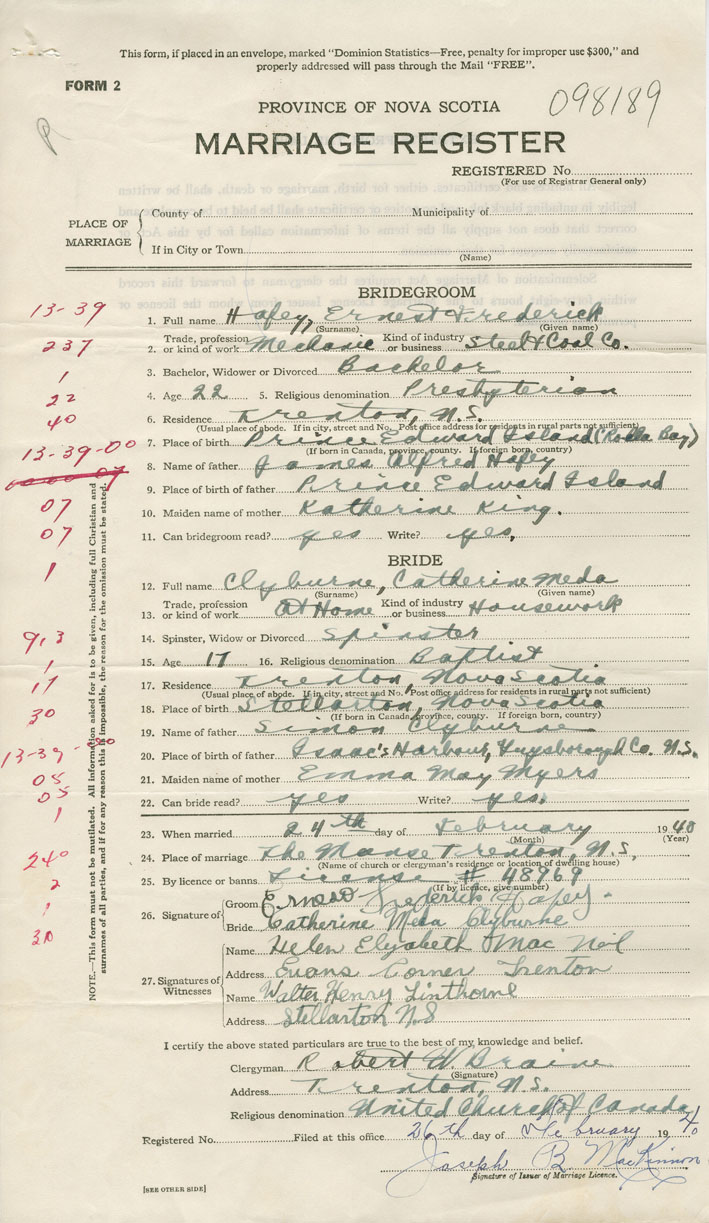 This form, if placed in an envelope, marked "Dominion Statistics—Free, penalty for improper use $300," and
properly addressed will pass through the Mail "FREE".
FORM 2
098189
P
PROVINCE OF NOVA SCOTIA
MARRIAGE REGISTER
REGISTERED No.
(For use of Registrar General only)
PLACE OF MARRIAGE
County of Municipality of
If in City or Town
(Name)
BRIDEGROOM
13-39
1. Full name Hafey, Ernest Frederick
(Surname) (Given name)
237
2. Trade, profession or kind of work Mechanic Kind of industry or business Steel & Coal Co.
1
3. Bachelor, Widower or Divorced Bachelor
22
4. Age 22 5. Religious denomination Presbyterian
40
6. Residence Trenton, N.S.
(Usual place of abode. If in city, street and No. Post office address for residents in rural parts not sufficient)
13-39-00
7. Place of birth Prince Edward Island (Rollo Bay)
(If born in Canada, province, county. If foreign born, country)
8. Name of father James Alfred Hafey
07
9. Place of birth of father Prince Edward Island
07
10. Maiden name of mother Katherine King.
11. Can bridegroom read? yes Write? yes.
1
BRIDE
12. Full name Clyburne, Catherine Meda
(Surname) (Given name)
13. Trade, profession or kind of work At Home Kind of industry or business Housework
913
14. Spinster, Widow or Divorced Spinster
1
15. Age 17 16. Religious denomination Baptist
17
17. Residence Trenton, Nova Scotia
(Usual place of abode. If in city, street and No. Post office address for residents in rural parts not sufficient)
30
18. Place of birth Stellarton, Nova Scotia
(If born in Canada, province, county. If foreign born, country)
19. Name of father Simon Clyburne
13-39-00
20. Place of birth of father Isaac's Harbour, Guysborough Co. N.S.
05
21. Maiden name of mother Emma May Myers
05
22. Can bride read? yes Write? yes.
1
23. When married 24th day of February 1940
(Month) (Year)
240
24. Place of marriage The Manse Trenton, N.S.
(Name of church or clergyman's residence or location of dwelling house)
2
25. By licence or banns License # 48969
(If by licence, give number)
1
26. Signature of
Groom Ernest Frederick Hafey.
Bride Catherine Meda Clyburne
30
27. Signatures of Witnesses
Name Helen Elyzabeth MacNeil
Address Evans Corner Trenton
Name Walter Henry Linthorne
Address Stellarton N.S
NOTE.—This form must not be mutilated. All information asked for is to be given, including full Christian and
surnames of all parties, and if for any reason this is impossible, the reason for the omission must be stated.
I certify the above stated particulars are true to the best of my knowledge and belief.
Clergyman Robert W. Braine
(Signature)
Address Trenton, N.S.
Religious denomination United Church of Canada
Registered No. Filed at this office 26th day of February 1940
Joseph B. MacKinnon
Signature of Issuer of Marriage Licence.
[SEE OTHER SIDE]